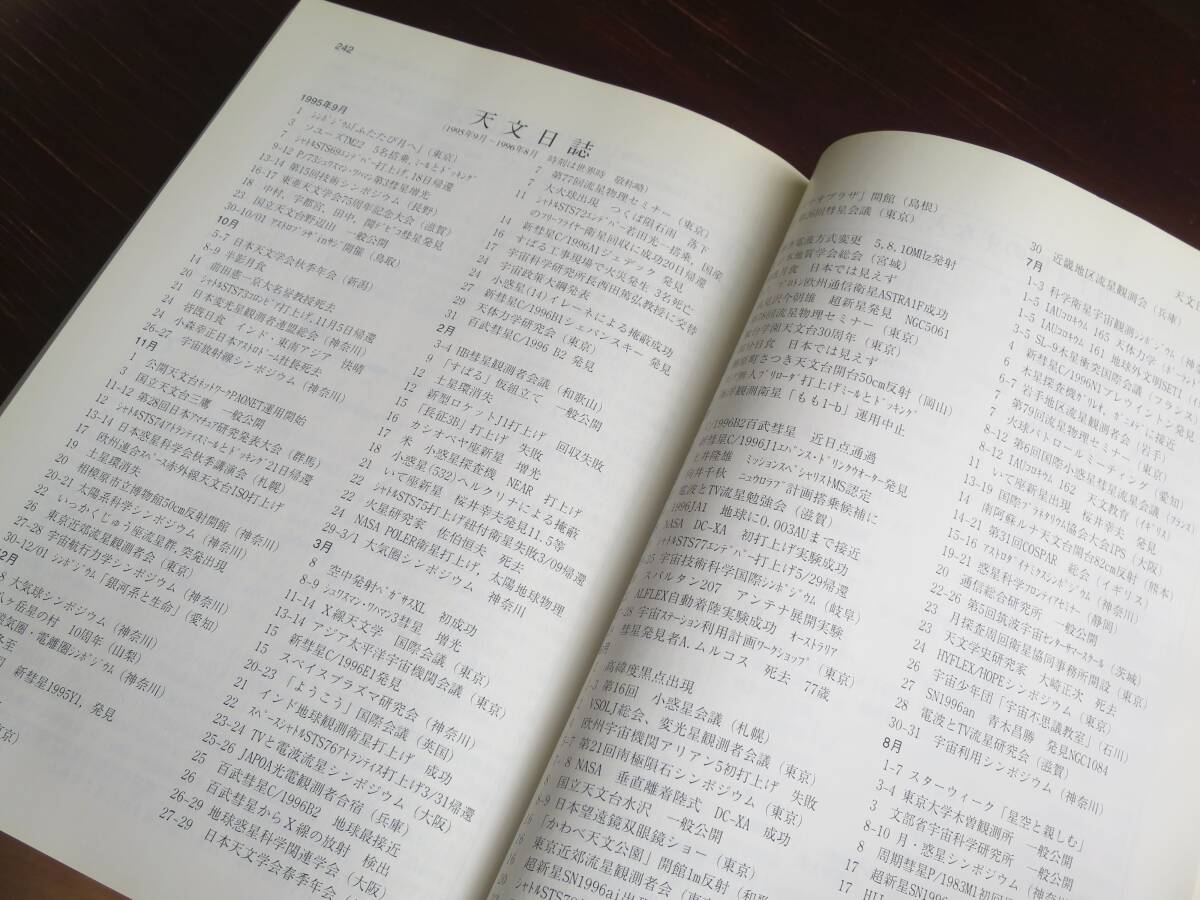 242
天文日誌
(1995年9月～1996年8月 時刻は世界時 敬称略)
1995年9月
1 シンポジウム「ふたたび月へ」(東京)
3 ソユーズTM22 5名搭乗,ミールとドッキング
7 シャトルSTS69エンデバー打上げ,18日帰還
9-12 P/73シュワスマン・ワハマン第3彗星増光
13-14 第15回技術シンポジウム(長野)
16-17 東亜天文学会75周年記念大会(滋賀)
18 中村, 宇都宮, 田中, 関デビコ彗星発見
23 国立天文台野辺山 一般公開
30-10/01 開催(鳥取)
10月
5-7 日本天文学会秋季年会(新潟)
8-9 半影月食
14 前田憲一京大名誉教授死去
20 シャトルSTS73コロンビア打上げ,11月5日帰還
21 日本変光星観測者連盟総会(神奈川)
24 皆既日食 インド・東南アジア 快晴
24 小森幸正日本アストロトーム社長死去
26-27 宇宙放射線シンポジウム(神奈川)
11月
1 公開天文台ネットワークPAONET運用開始
3 国立天文台三鷹 一般公開
11-12 第28回日本アマチュア研究発表大会(群馬)
12 シャトルSTS74アトランティスミールとドッキング21日帰還
13-14 日本惑星科学会秋季講演会(札幌)
17 欧州連合スペース赤外線天文台ISO打上げ
19 土星環消失
20 相模原市立博物館50cm反射開館(神奈川)
20-21 太陽系科学シンポジウム(神奈川)
22 いっかくじゅう座流星群,突発出現
26 東京近郊流星観測者会(東京)
27-28 宇宙航行力学シンポジウム(神奈川)
30-12/01 シンポジウム「銀河系と生命」(愛知)
2月
8 大気球シンポジウム(神奈川)
八ヶ岳星の村 10周年(山梨)
磁気圏・電離圏シンポジウム(神奈川)
冬至
新彗星1995Y1, 発見
東京)
7 第77回流星物理セミナー(東京)
7 大火球出現 つくば隕石雨 落下
11 シャトルSTS72エンデバー若田光一搭乗, 国産
のフリーフライヤー衛星回収に成功20日帰還
14 新彗星C/1996A1ジュデック 発見
16 すばる工事現場で火災発生 3名死亡
17 宇宙科学研究所長西田篤弘教授に交替
24 宇宙政策大綱発表
24 小惑星(14)イレーネによる掩蔽成功
27 新彗星C/1996B1シェパンスキー 発見
29 天体力学研究会(東京)
31 百武彗星C/1996 B2 発見
2月
3-4 HB彗星観測者会議(和歌山)
9 「すばる」仮組立て 一般公開
12 土星環消失
12 新型ロケットJ1打上げ 回収失敗
15 「長征3B」打上げ 失敗
16 カシオペヤ座新星 増光
17 米 小惑星探査機 NEAR 打上げ
18 小惑星(532)ヘルクリナによる掩蔽
21 いて座新星 桜井幸夫発見11.5等
22 シャトルSTS75打上げ紐付衛星失敗3/09帰還
22 火星研究家 佐伯恒夫 死去
24 NASA POLER衛星打上げ, 太陽地球物理
29-3/1 大気圏シンポジウム 神奈川
3月
8 空中発射ペガサスXL 初成功
8-9 シュワスマン・ワハマン3彗星 増光
11-14 X線天文学 国際会議(東京)
13-14 アジア太平洋宇宙機関会議(東京)
15 新彗星C/1996E1発見
15 スペイスプラズマ研究会(神奈川)
20-23 「ようこう」国際会議(英国)
21 インド地球観測衛星打上げ 成功
22 スペースシャトルSTS76アトランティス打上げ3/31帰還
23-24 TVと電波流星シンポジウム(大阪)
25-26 JAPOA光電観測者合宿(兵庫)
25 百武彗星C/1996B2 地球最接近
26 百武彗星からX線の放射 検出
26-29 地球惑星科学関連学会(大阪)
27-29 日本天文学会春季年会
オプラザ」開館(島根)
26回彗星会議(東京)
電波方式変更 5,8,10MHz発射
本地質学会総会(宮城)
月食 日本では見えず
プロトン欧州通信衛星ASTRA1F成功
沢今朝雄 超新星発見 NGC5061
78回流星物理セミナー(東京)
合学園天文台30周年(東京)
分日食 日本では見えず
町さつき天文台開台50cm反射(岡山)
無人プリローダ打上げミールとドッキング
洋観測衛星「もも1-b」運用中止
C/1996B2百武彗星 近日点通過
新彗星C/1996J1エバンス・ドリンクウォーター発見
土井隆雄 ミッションスペシャリストMS認定
向井千秋 ニュウロラブ計画搭乗候補に
電波とTV流星勉強会(滋賀)
1996JA1 地球に0.003AUまで接近
NASA DC-XA 初打上げ実験成功
シャトルSTS77エンデバー打上げ5/29帰還
25 宇宙技術科学国際シンポジウム(岐阜)
スパルタン207 アンテナ展開実験
ALFLEX自動着陸実験成功 オーストラリア
28 宇宙ステーション利用計画ワークショップ(東京)
彗星発見者A.ムルコス 死去 77歳
月
高緯度黒点出現
-3 第16回 小惑星会議(札幌)
VSOLJ総会, 変光星観測者会議(東京)
欧州宇宙機関アリアン5初打上げ 失敗
6-7 第21回南極隕石シンポジウム(東京)
7, 8 NASA 垂直離着陸式 DC-XA 成功
8 国立天文台水沢 一般公開
8-9 日本望遠鏡双眼鏡ショー(東京)
「かわべ天文公園」開館1m反射(和歌
16 東京近郊流星観測者会(東京)
16 超新星SN1996ai出現
20 シャトルSTS78
30 近畿地区流星観測会(兵庫)
7月
1-3 科学衛星宇宙観測シンポジウム(神奈
1-5 IAUコロキウム 165 天体力学(ポーラン
1-5 IAUコロキウム 161 地球外文明SETI
3-5 SL-9木星衝突国際会議(フランス
4 新彗星C/1996N1ブレウィントン発見
6-7 木星探査機ガリレオ, ガニメデに接近
6-7 岩手地区流星観測者会(岩手)
7 第79回流星物理セミナー(東京)
7 火球パトロールミーティング(愛知)
8-12 第6回国際小惑星彗星流星会議(フランス
8-12 IAUコロキウム 162 天文教育(イギリス)
11 いて座新星出現 桜井幸夫 発見
13-19 国際プラネタリウム協会大会IPS(大阪)
14 南阿蘇ルナ天文台開台82cm反射(熊本)
14-21 第31回COSPAR 総会(イギリス)
15-16 アストロダイナミクスシンポジウム(神奈川)
19-21 惑星科学フロンティアセミナー(静岡)
20 通信総合研究所 一般公開
22-26 第5回筑波宇宙センターサマースクール(茨城)
23 月探査周回衛星協同事務所開設(東京)
23 天文学史研究家 大崎正次 死去
26 HYFLEX/HOPEシンポジウム(東京)
27 宇宙少年団「宇宙不思議教室」(石川)
27 SN1996an 青木昌勝 発見NGC1084
28 電波とTV流星研究会(滋賀)
30-31 宇宙利用シンポジウム(神奈川)
8月
1-7 スターウィーク「星空と親しむ」
3-4 東京大学木曽観測所 一般公開
3 文部省宇宙科学研究所 一般公開
8-10 月・惑星シンポジウム(神奈
8 周期彗星P/1983M1初回
17 超新星SN1996
17
天文